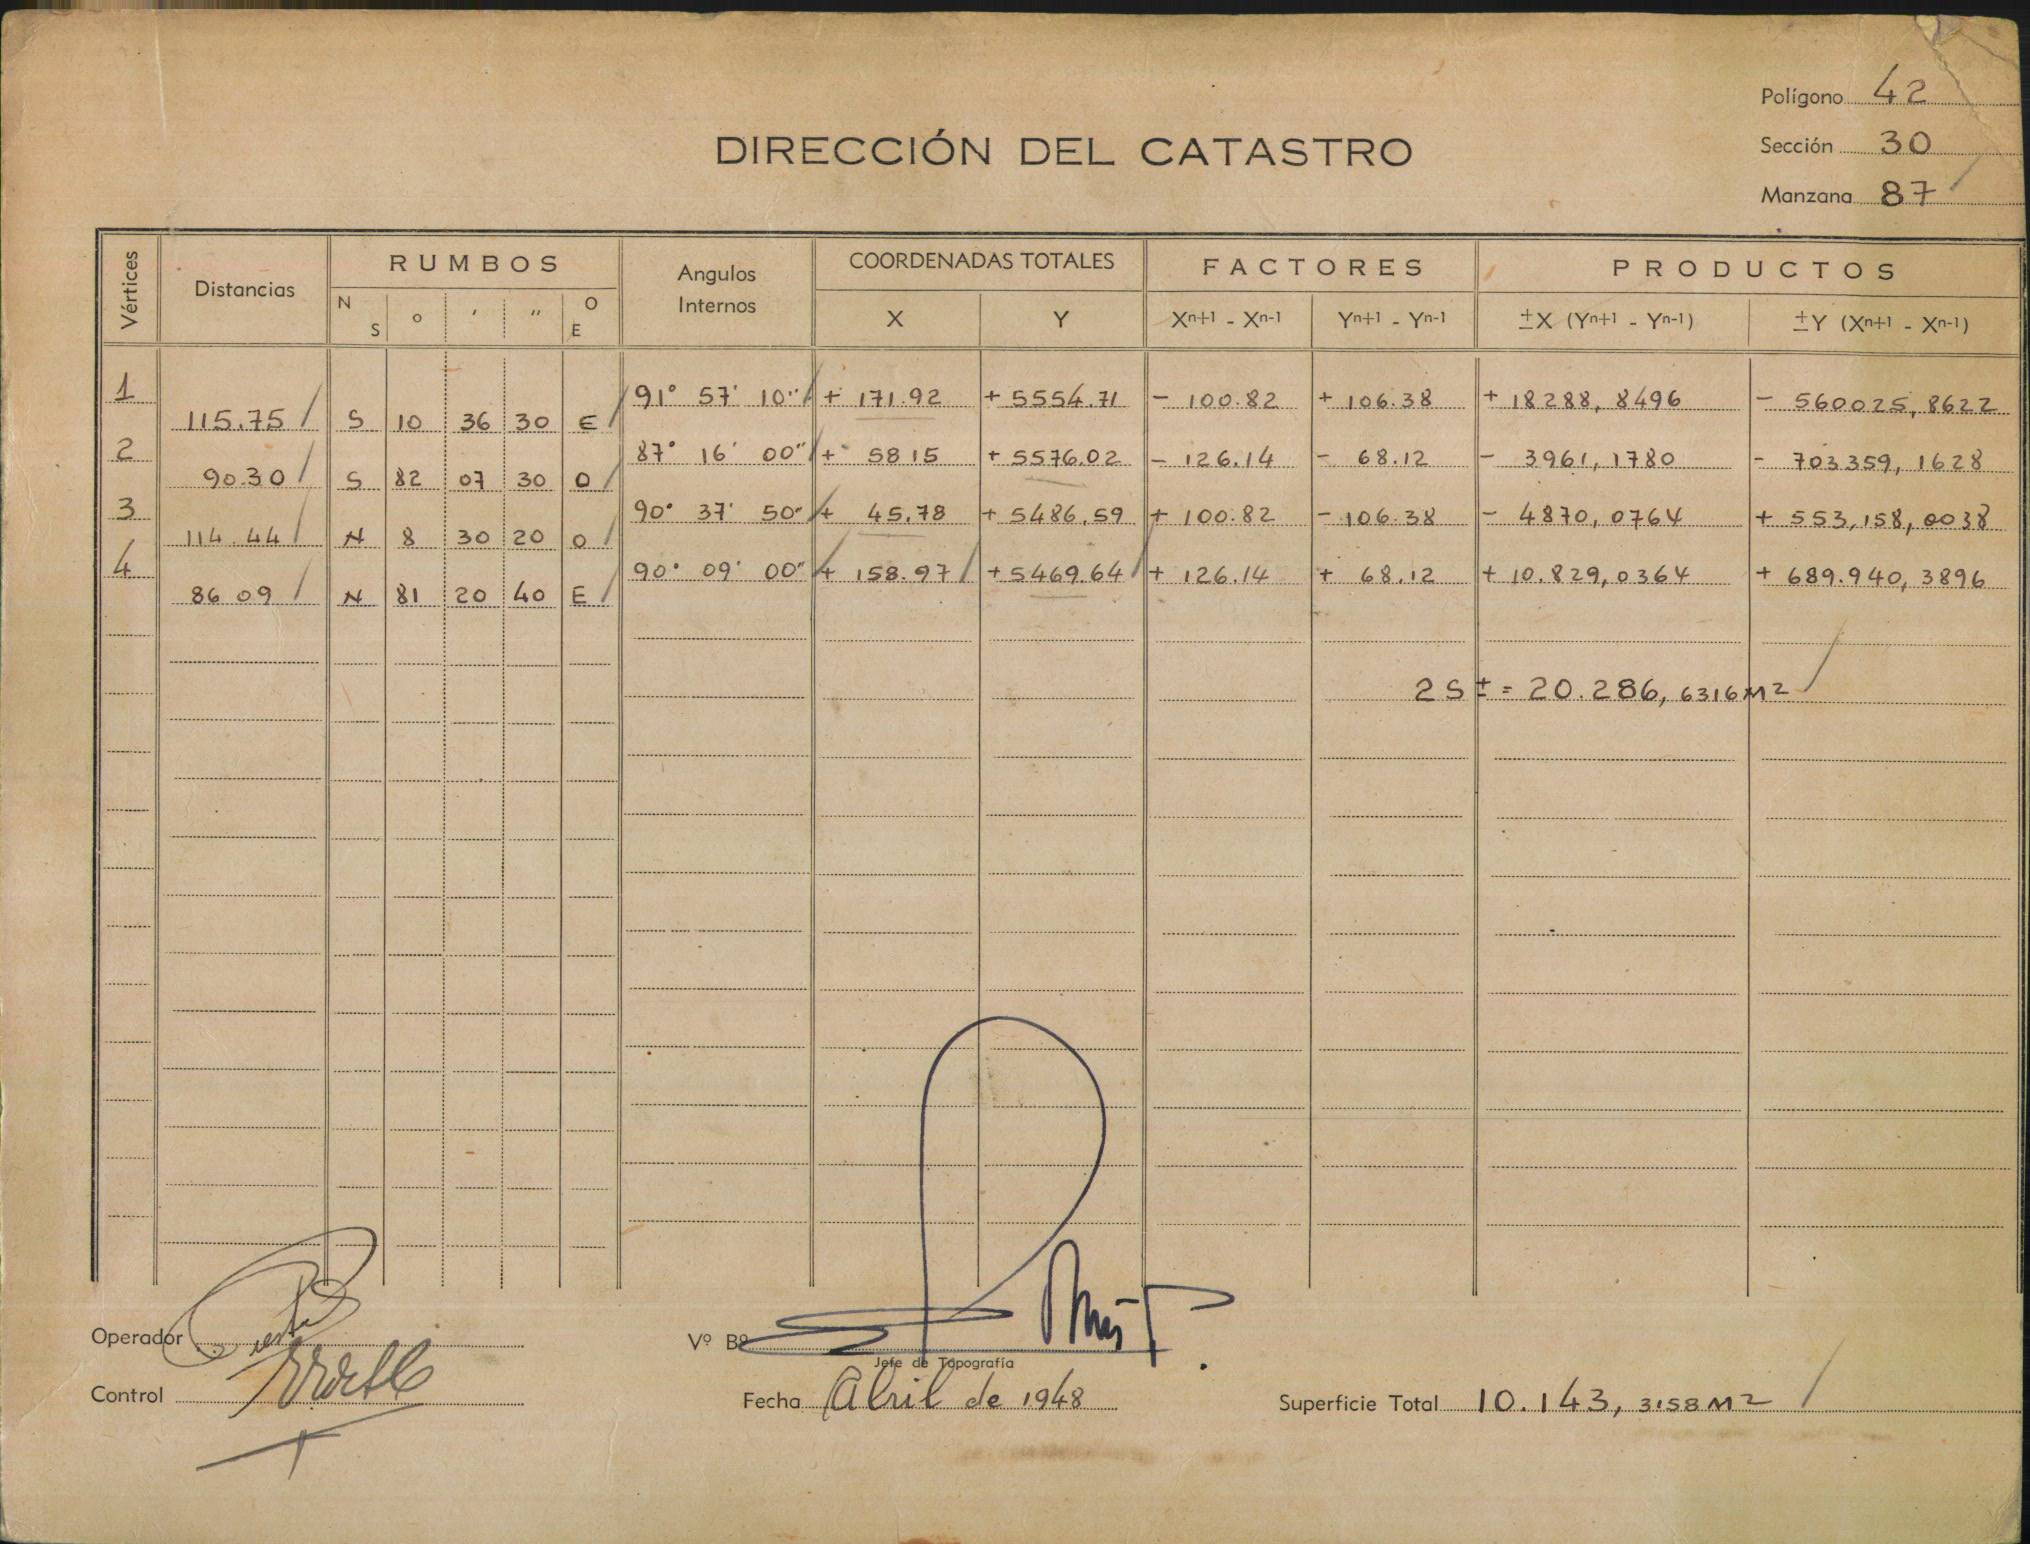 Polígono 42
DIRECCIÓN DEL CATASTRO
Sección 30
Manzana 87
Vértices Distancias RUMBOS Angulos Internos COORDENADAS TOTALES FACTORES PRODUCTOS
N S ° ′ ″ O E X Y Xⁿ⁺¹ - Xⁿ⁻¹ Yⁿ⁺¹ - Yⁿ⁻¹ ±X (Yⁿ⁺¹ - Yⁿ⁻¹) ±Y (Xⁿ⁺¹ - Xⁿ⁻¹)
1 91° 57' 10" + 171.92 + 5554.71 - 100.82 + 106.38 + 18288,8496 - 560025,8622
115.75 S 10 36 30 E
2 87° 16' 00" + 58 15 + 5576.02 - 126.14 - 68.12 - 3961,1780 - 703359,1628
90.30 S 82 07 30 O
3 90° 37' 50" + 45.78 + 5486.59 + 100.82 - 106.38 - 4870,0764 + 553,158,0038
114.44 N 8 30 20 O
4 90° 09' 00" + 158.97 + 5469.64 + 126.14 + 68.12 + 10.829,0364 + 689.940,3896
86 09 N 81 20 40 E
2 S ± = 20.286, 6316 M2
Operador
Vº Bº
Jefe de Topografía
Control
Fecha Abril de 1948
Superficie Total 10.143, 3158 M2